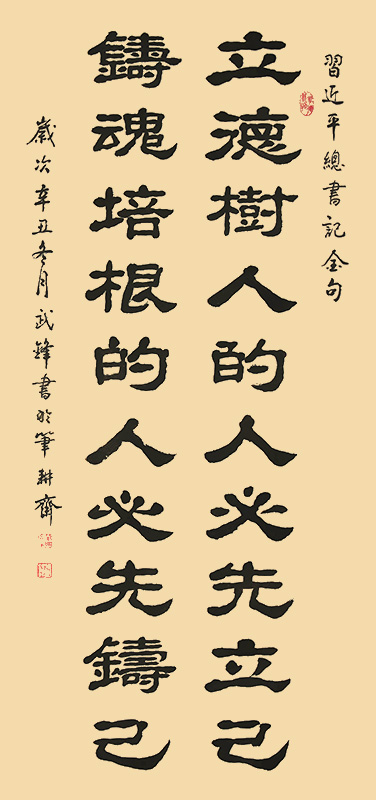 習近平總書記金句
立德樹人的人必先立己
鑄魂培根的人必先鑄己
歲次辛丑冬月武鋒書於筆耕齋